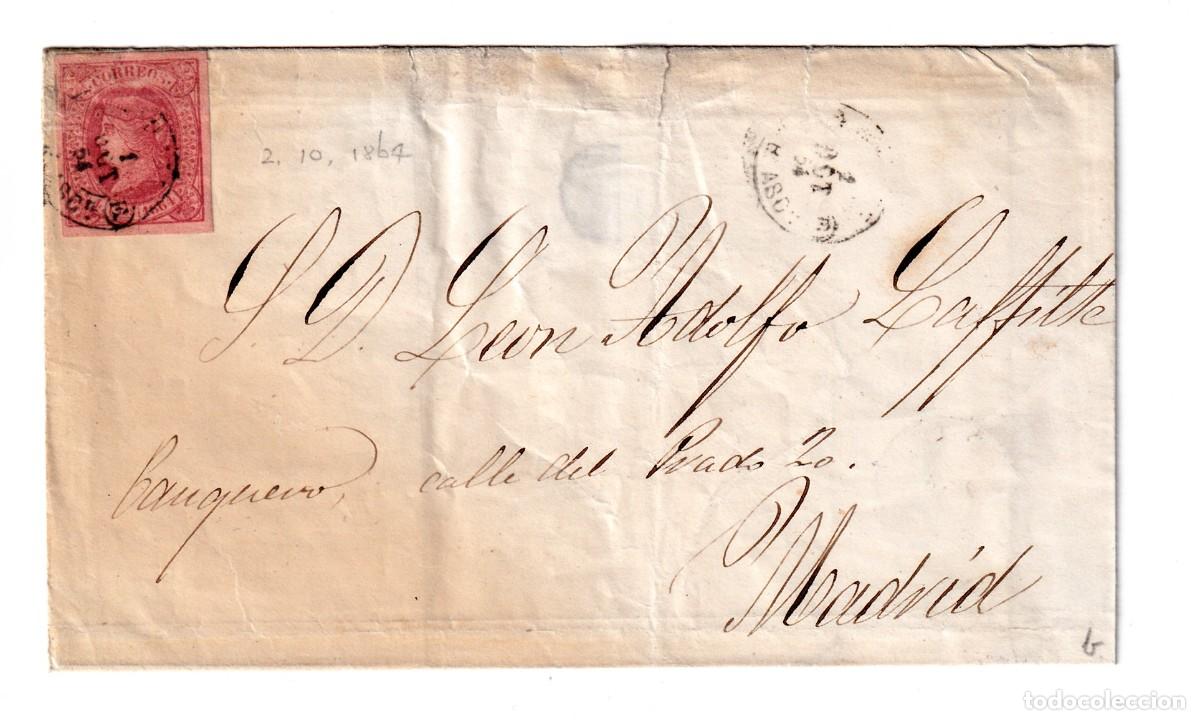 CORREOS
1
OCT
64
2. 10. 1864
2
OCT
64
S. D. Leon Adolfo Laffitte
Banquero, calle del Prado 20.
Madrid
todocoleccion